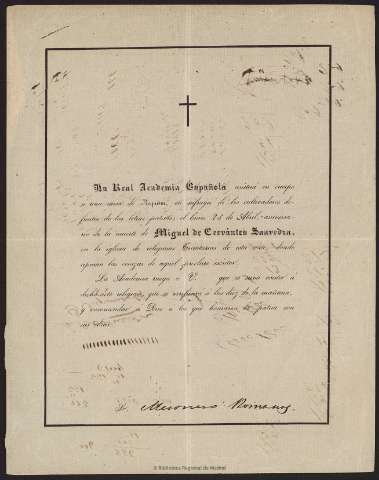 La Real Academia Española asistirá en cuerpo
a una misa de Requiem, en sufragio de los cultivadores di-
funtos de las letras patrias, el lunes 23 de Abril, aniversa-
rio de la muerte de Miguel de Cervántes Saavedra,
en la iglesia de religiosas Trinitarias de esta corte, donde
yacen las cenizas de aquel preclaro escritor.
La Academia ruega á V. que se sirva asistir á
dicho acto religioso, que se verificará á las diez de la mañana,
y encomendar á Dios á los que honraron la patria con
sus obras.
Sr. Mesonero Romanos
© Biblioteca Regional de Madrid